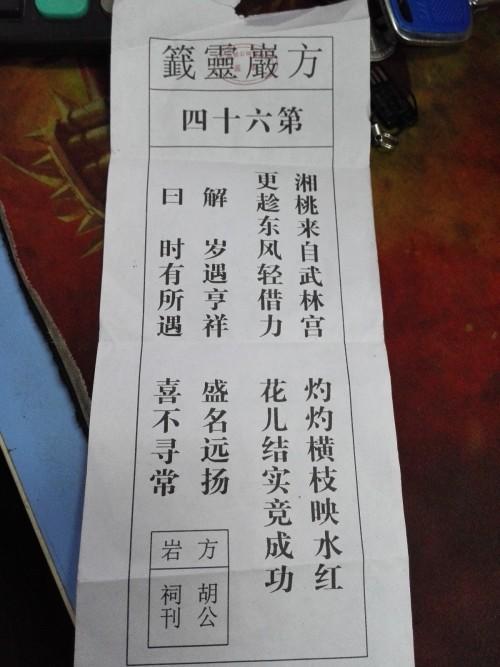 方巖靈籤
第六十四
湘桃来自武林宫 灼灼横枝映水红
更趁东风轻借力 花儿结实竞成功
解 岁遇亨祥 盛名远扬
曰 时有所遇 喜不寻常
方 胡公
岩 祠刊